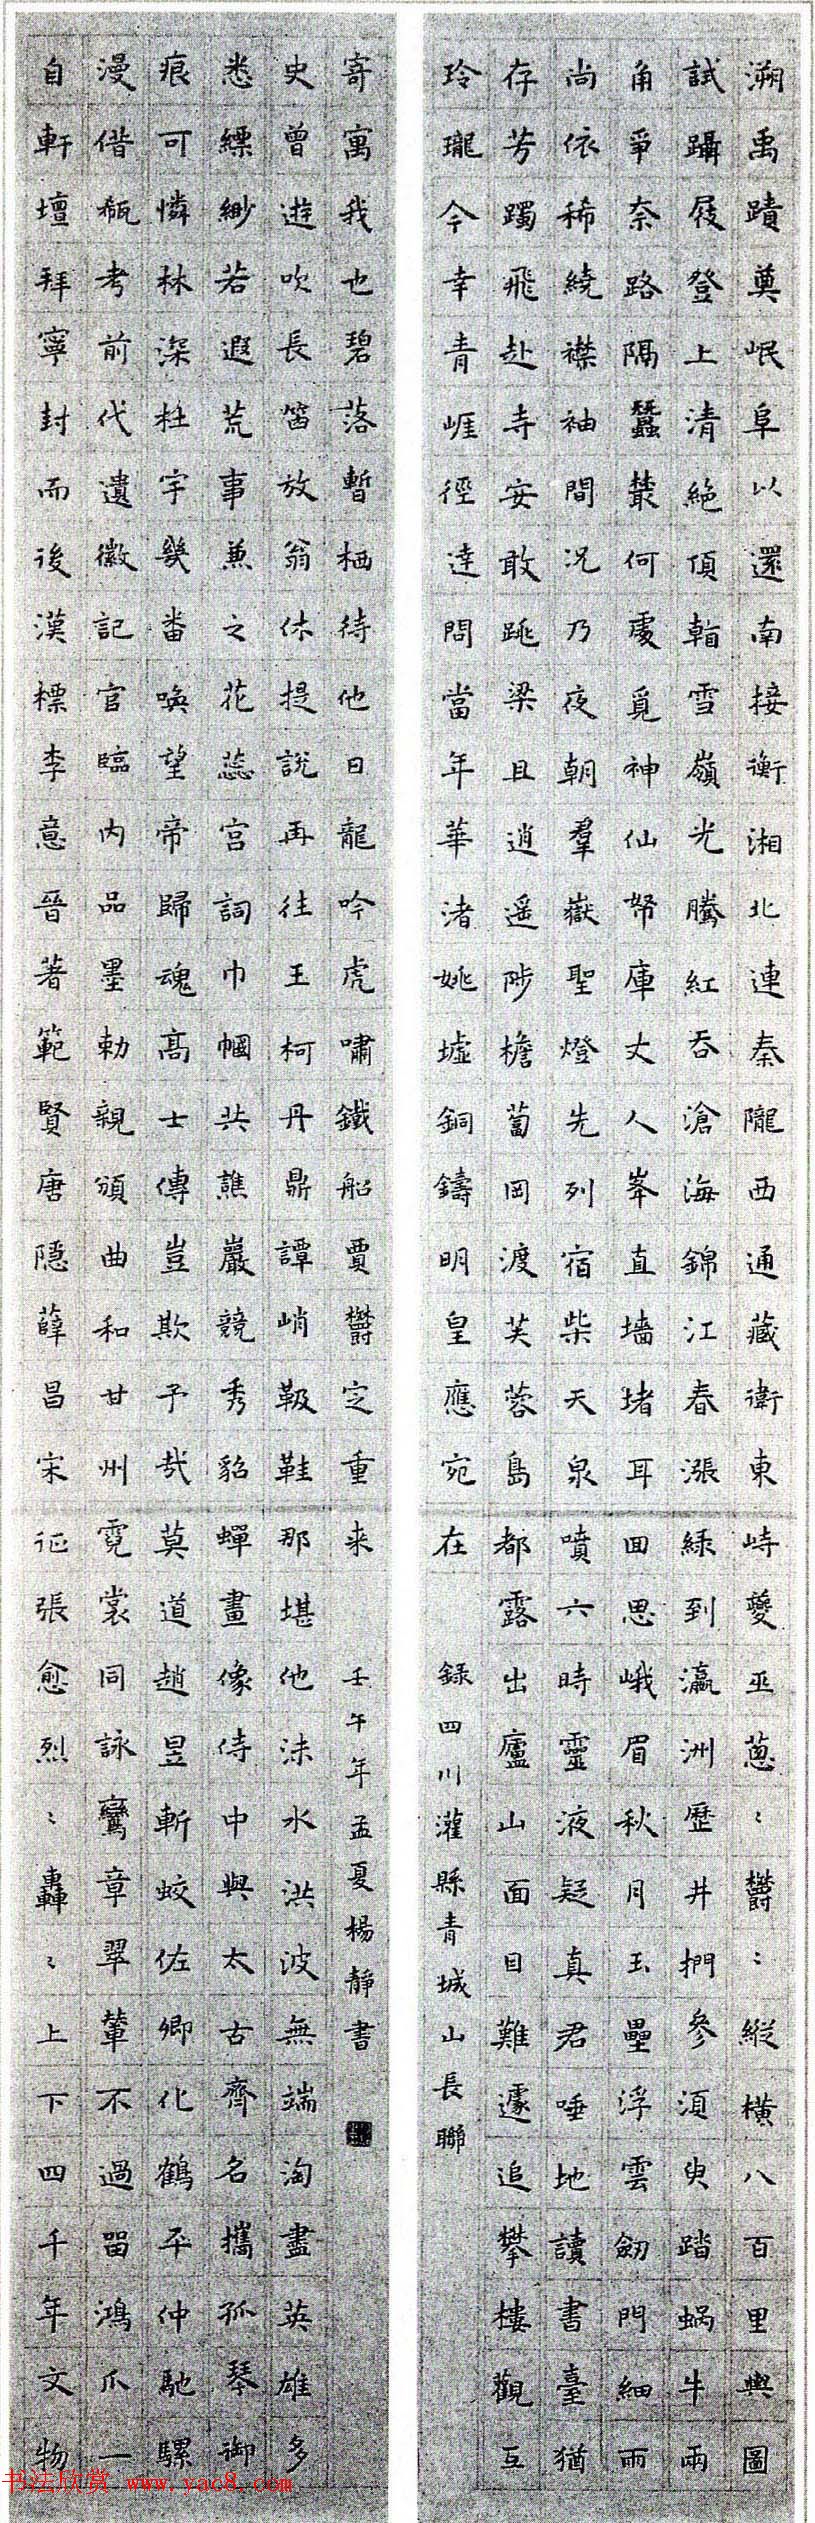 溯禹蹟奠岷阜以還南接衡湘北連秦隴西通藏衛東峙夔巫蔥〻鬱〻縱橫八百里輿圖
試躡屐登上清絕頂看雪嶺光騰紅吞滄海錦江春漲綠到瀛洲歷井捫參須臾踏蝸牛兩
角爭奈路隔蠶叢何處覓神仙帑庫丈人峯直墻堵耳回思峨眉秋月玉壘浮雲劒門細雨
尚依稀繞襟袖間況乃夜朝羣嶽聖燈先列宿柴天泉噴六時靈液疑真君唾地讀書臺猶
存芳躅飛赴寺安敢跳梁且逍遥陟檐蔔岡渡芙蓉島都露出廬山面目難遽追攀樓觀互
玲瓏今幸青崕徑達問當年華渚姚墟銅鑄明皇應宛在
錄四川灌縣青城山長聯
自軒壇拜寧封而後漢標李意晉著範賢唐隱薛昌宋征張愈烈〻轟〻上下四千年文物
漫借瓻考前代遺徽記官臨內品墨勅親頒曲和甘州霓裳同詠鸞章翠輦不過留鴻爪一
痕可憐林深杜宇幾番喚望帝歸魂高士傳豈欺予哉莫道趙昱斬蛟佐卿化鶴平仲馳騾
悉縹緲若遐荒事兼之花蕊宮詞巾幗共譙巖競秀貂蟬畫像侍中與太古齊名攜孤琴御
史曾遊吹長笛放翁休提說再往王柯丹鼎譚峭靸鞋那堪他沫水洪波無端淘盡英雄多
寄寓我也碧落暫栖待他日龍吟虎嘯鐵船賈鬱定重來
壬午年孟夏楊靜書
书法欣赏 www.yac8.com